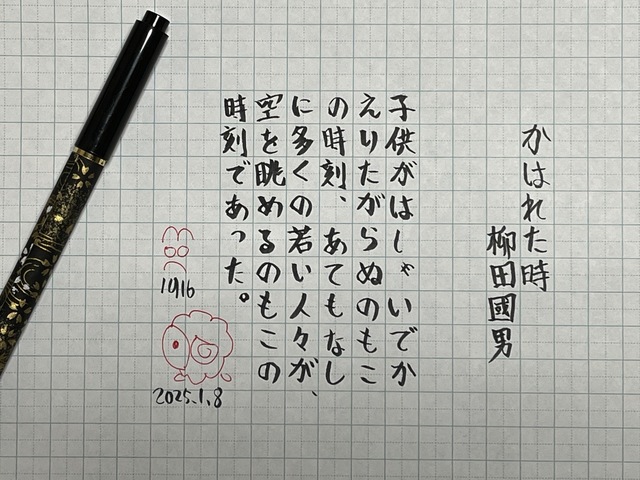 かはれた時
柳田國男
子供がはしゃいでか
えりたがらぬのもこ
の時刻、あてもなし
に多くの若い人々が、
空を眺めるのもこの
時刻であった。
1916
2025.1.8